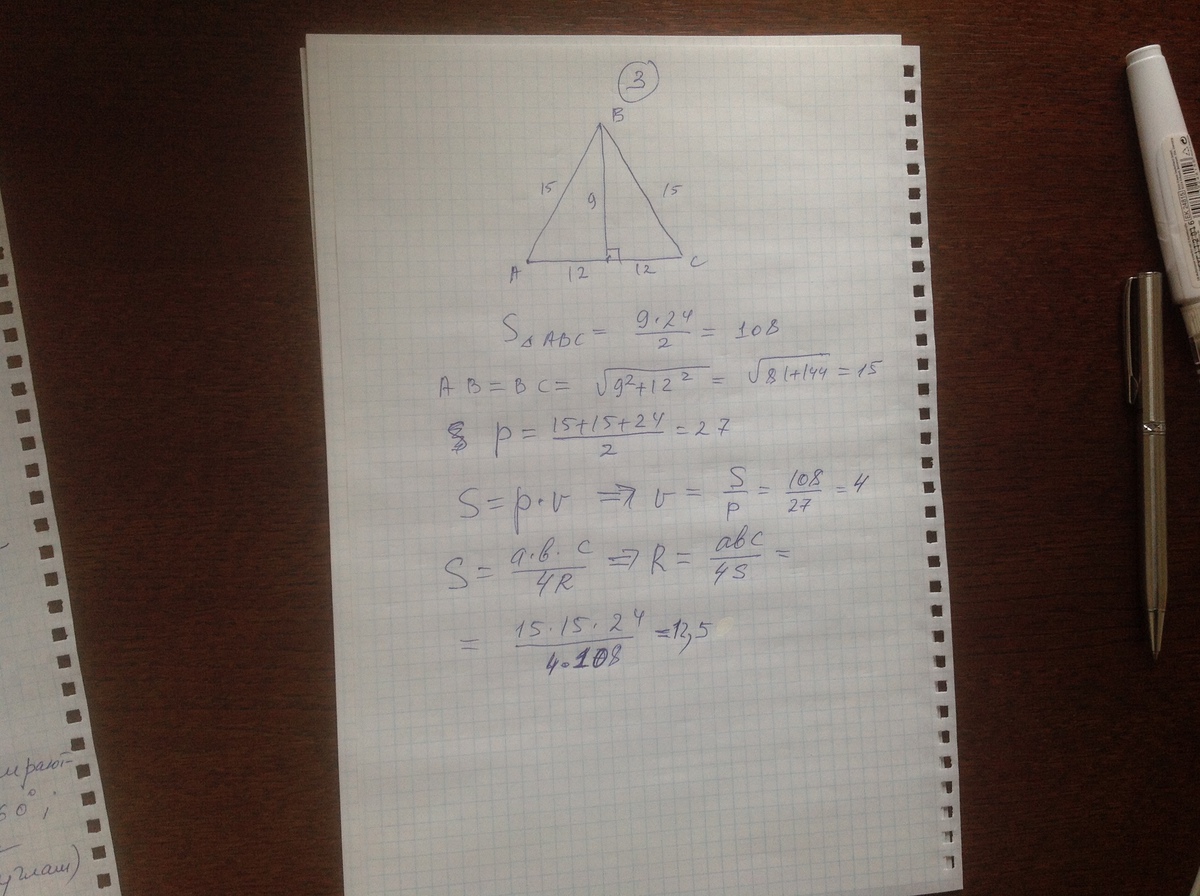 3
B
15
9
15
A
12
12
C
S△ABC = 9·24/2 = 108
AB = BC = √(9²+12²) = √(81+144) = 15
p = (15+15+24)/2 = 27
S = p·r ⇒ r = S/p = 108/27 = 4
S = a·b·c/4R ⇒ R = abc/4S =
= 15·15·24/4·108 = 12,5
60°;